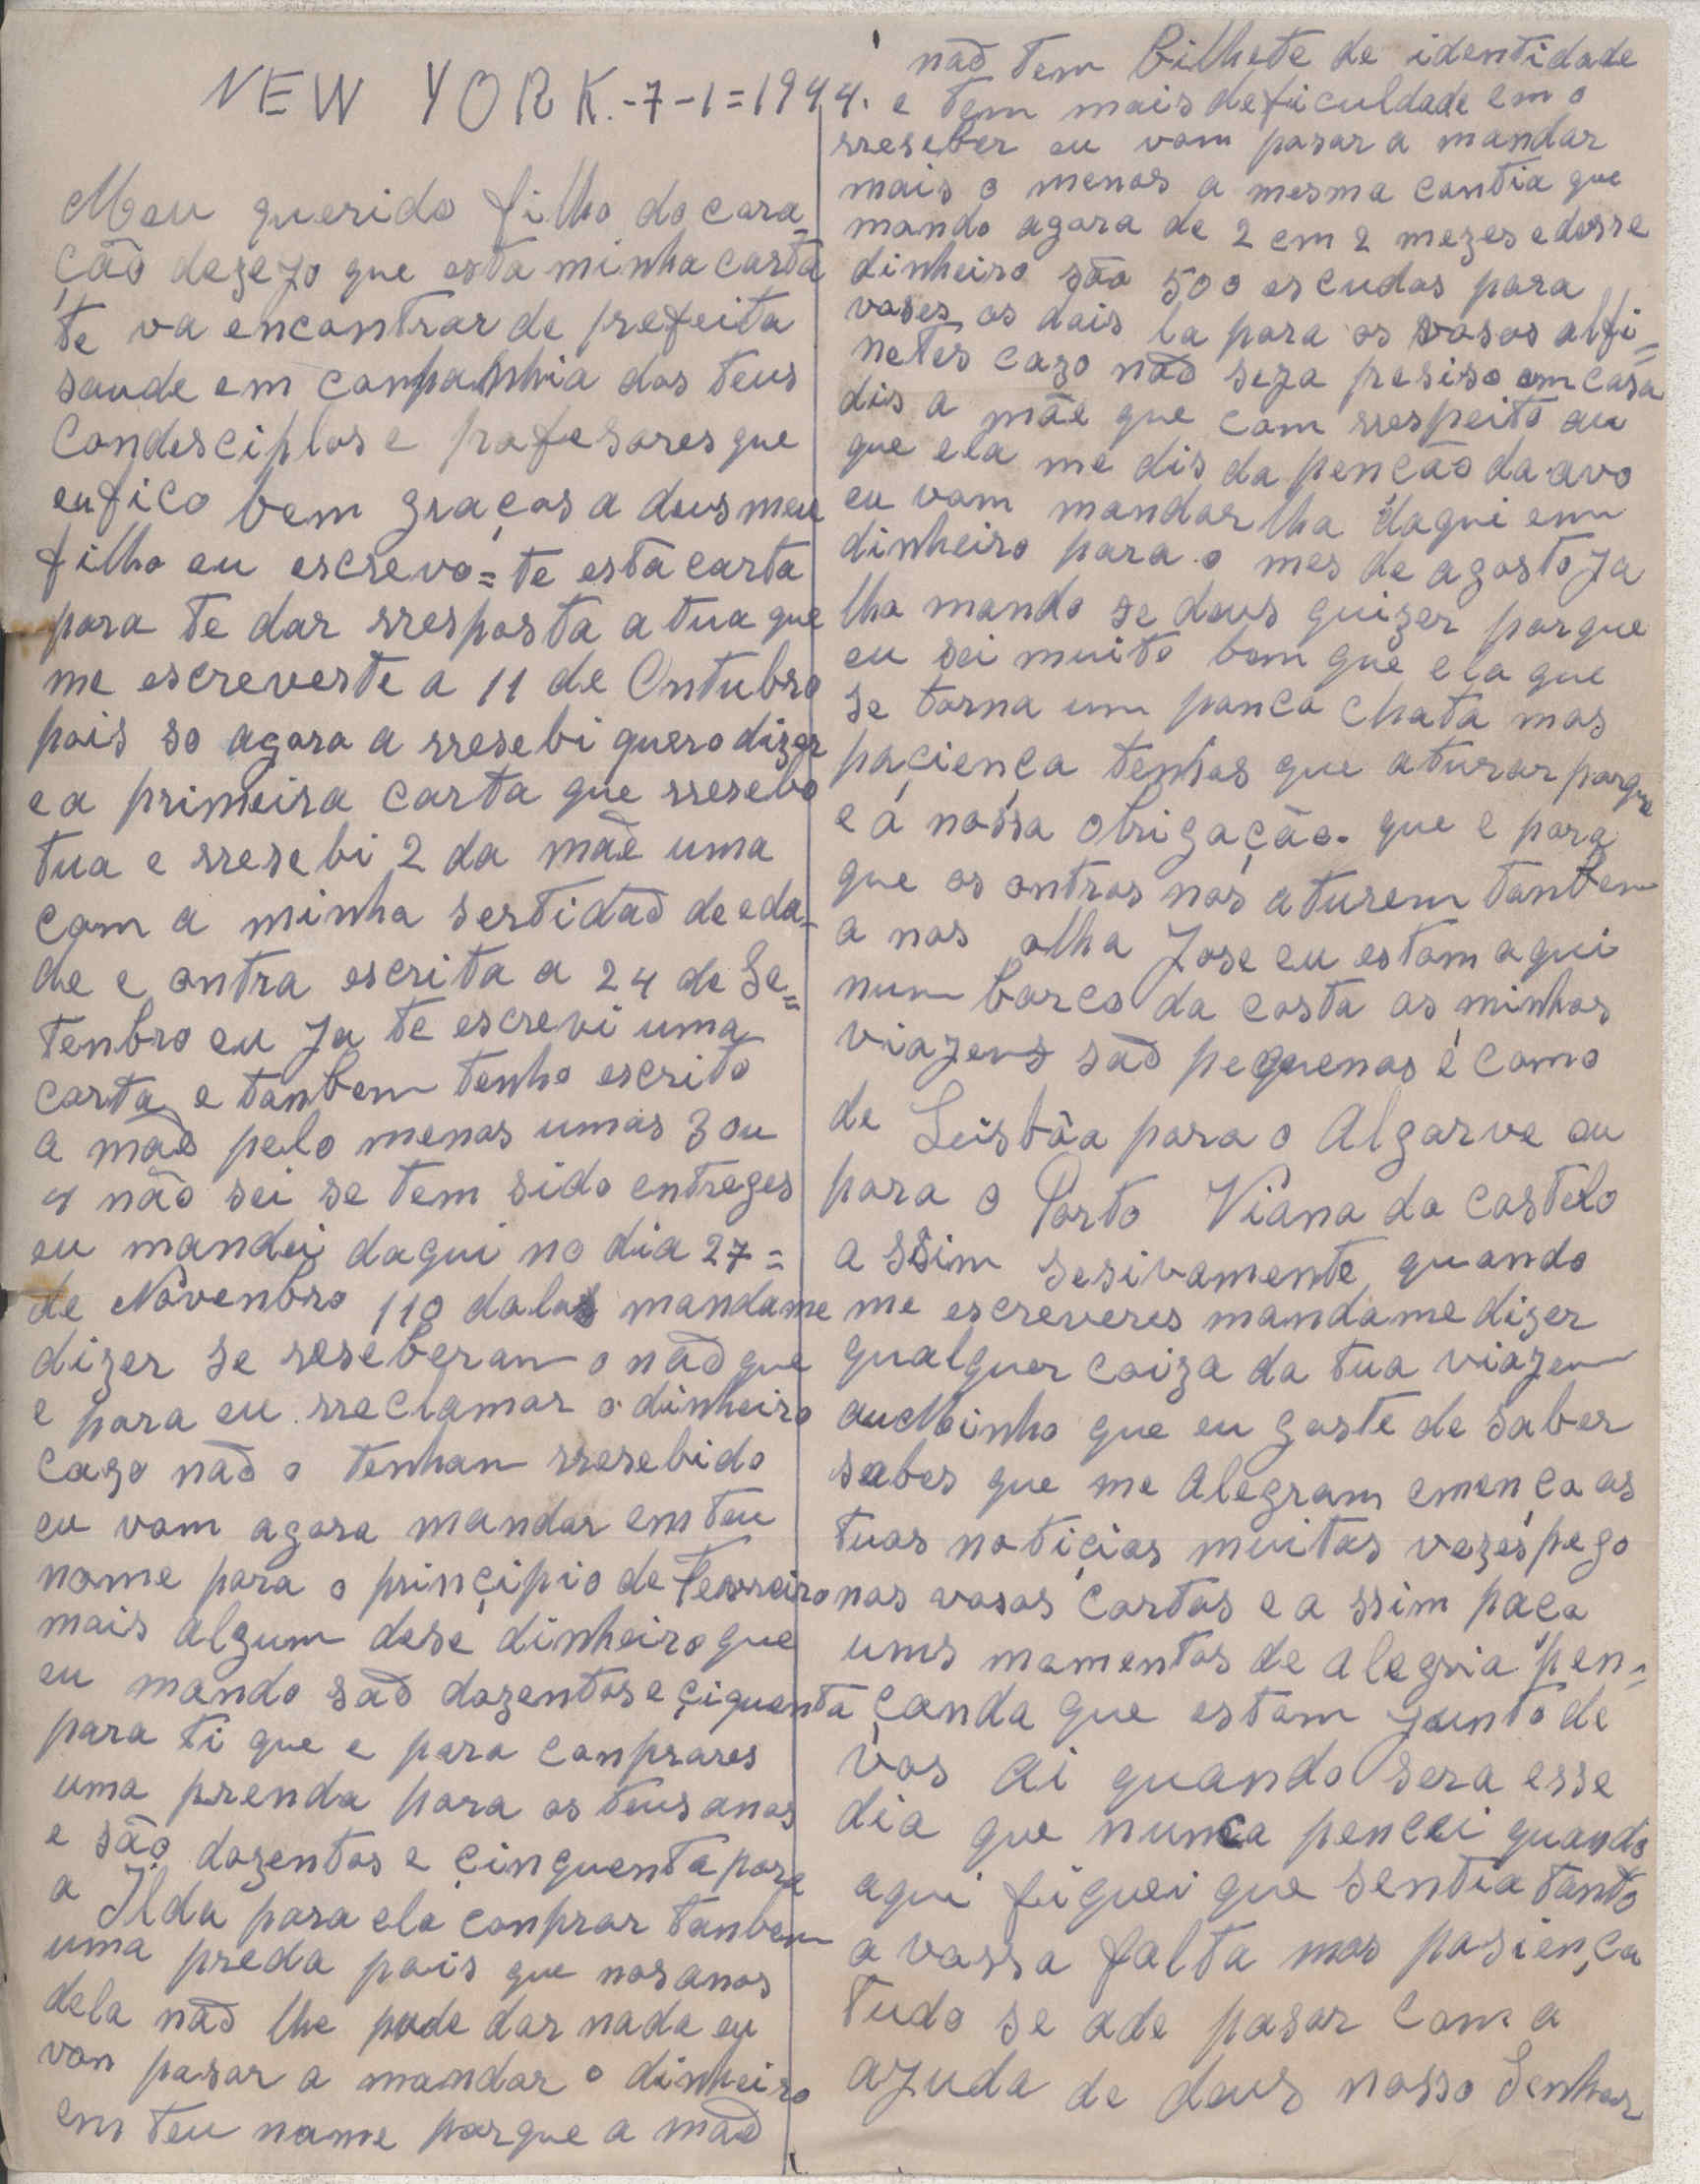 NEW YORK.-7-1=1944.
Meu querido filho do cora=
ção dezejo que esta minha carta
te va encontrar de prefeita
saude em conpanhia dos teus
Condesciplos e profesores que
eu fico bem graças a deus meu
filho eu escrevo=te esta carta
para te dar rresposta a tua que
me escreveste a 11 de Outubro
pois so agora a rresebi quero dizer
e a primeira carta que rresebo
tua e rresebi 2 da mãe uma
com a minha sertidaõ de eda=
de e outra escrita a 24 de Se=
tenbro eu ja te escrevi uma
carta e tanbem tenho escrito
a mãe pelo menos umas 3 ou
4 não sei se tem sido entreges
eu mandei daqui no dia 27=
de Novenbro 110 dolas mandame
dizer se reseberam o naõ que
e para eu rreclamar o dinheiro
cazo naõ o tenham rresebido
eu vom agora mandar em teu
nome para o prinçipio de Fevreiro
mais algum dese dinheiro que
eu mando saõ dozentos e çiquenta
para ti que e para conprares
uma prenda para os teus anos
e são dozentos e çinquenta para
a Ilda para ela conprar tanbem
uma preda pois que nos anos
dela naõ lhe pude dar nada eu
von pasar a mandar o dinheiro
em teu nome porque a maẽ
naõ tem bilhete de identidade
e tem mais deficuldade em o
rreseber eu vom pasar a mandar
mais o menos a mesma contia que
mando agora de 2 em 2 mezes e desse
dinheiro são 500 escudos para
voses os dois la para os vosos alfi=
netes cazo naõ seja presiso em casa
dis a mãe que com rrespeito au
que ela me dis da penção da avo
eu vom mandar lha daqui em
dinheiro para o mes de agosto ja
lho mando se deus quizer porque
eu sei muito bem que ela que
se torna um pouco chata mas
paçiença tenhas que aturar porque
e a nossa obrigação. que e para
que os outros nos aturem tanbem
a nos olha Jose eu estom aqui
num barco da costa as minhas
viajens saõ pequenas é como
de Leisbôa para o Algarve ou
para o Porto Viana do Castelo
assim sesivamente quando
me escreveres mandame dizer
qualquer coiza da tua viajem
au Moinho que eu goste de saber
sabes que me alegram emenço as
tuas notiçias muitas vezes pego
nas vosas cartas e assim paço
ums momentos de alegria pen=
çando que estom junto de
vos ai quando sera esse
dia que nunca pencei quando
aqui fiquei que sentia tanto
a vossa falta mas pasiença
tudo se ade pasar com a
ajuda de deus nosso Senhor